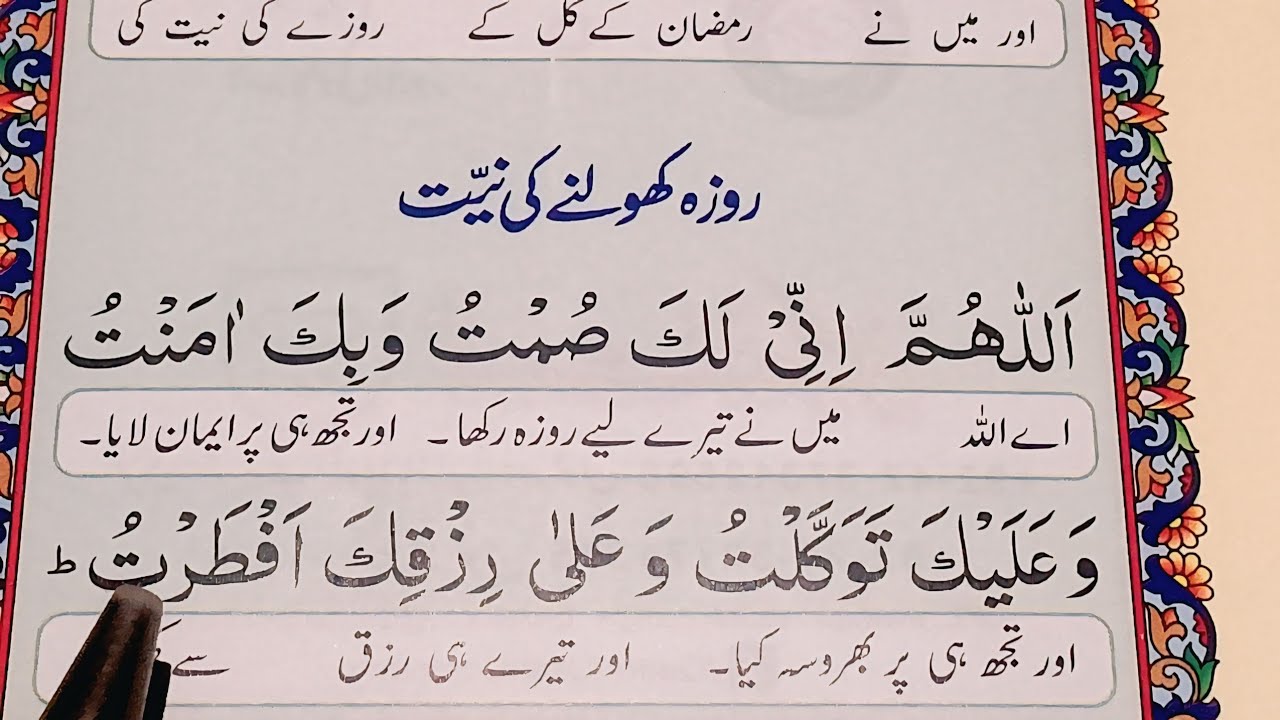 اور میں نے رمضان کے کل کے روزے کی نیت کی
روزہ کھولنے کی نیّت
اَللّٰهُمَّ اِنِّىْ لَكَ صُمْتُ وَبِكَ اٰمَنْتُ
اے اللہ میں نے تیرے لیے روزہ رکھا۔ اور تجھ ہی پر ایمان لایا۔
وَعَلَيْكَ تَوَكَّلْتُ وَ عَلٰى رِزْقِكَ اَفْطَرْتُ ط
اور تجھ ہی پر بھروسہ کیا۔ اور تیرے ہی رزق سے